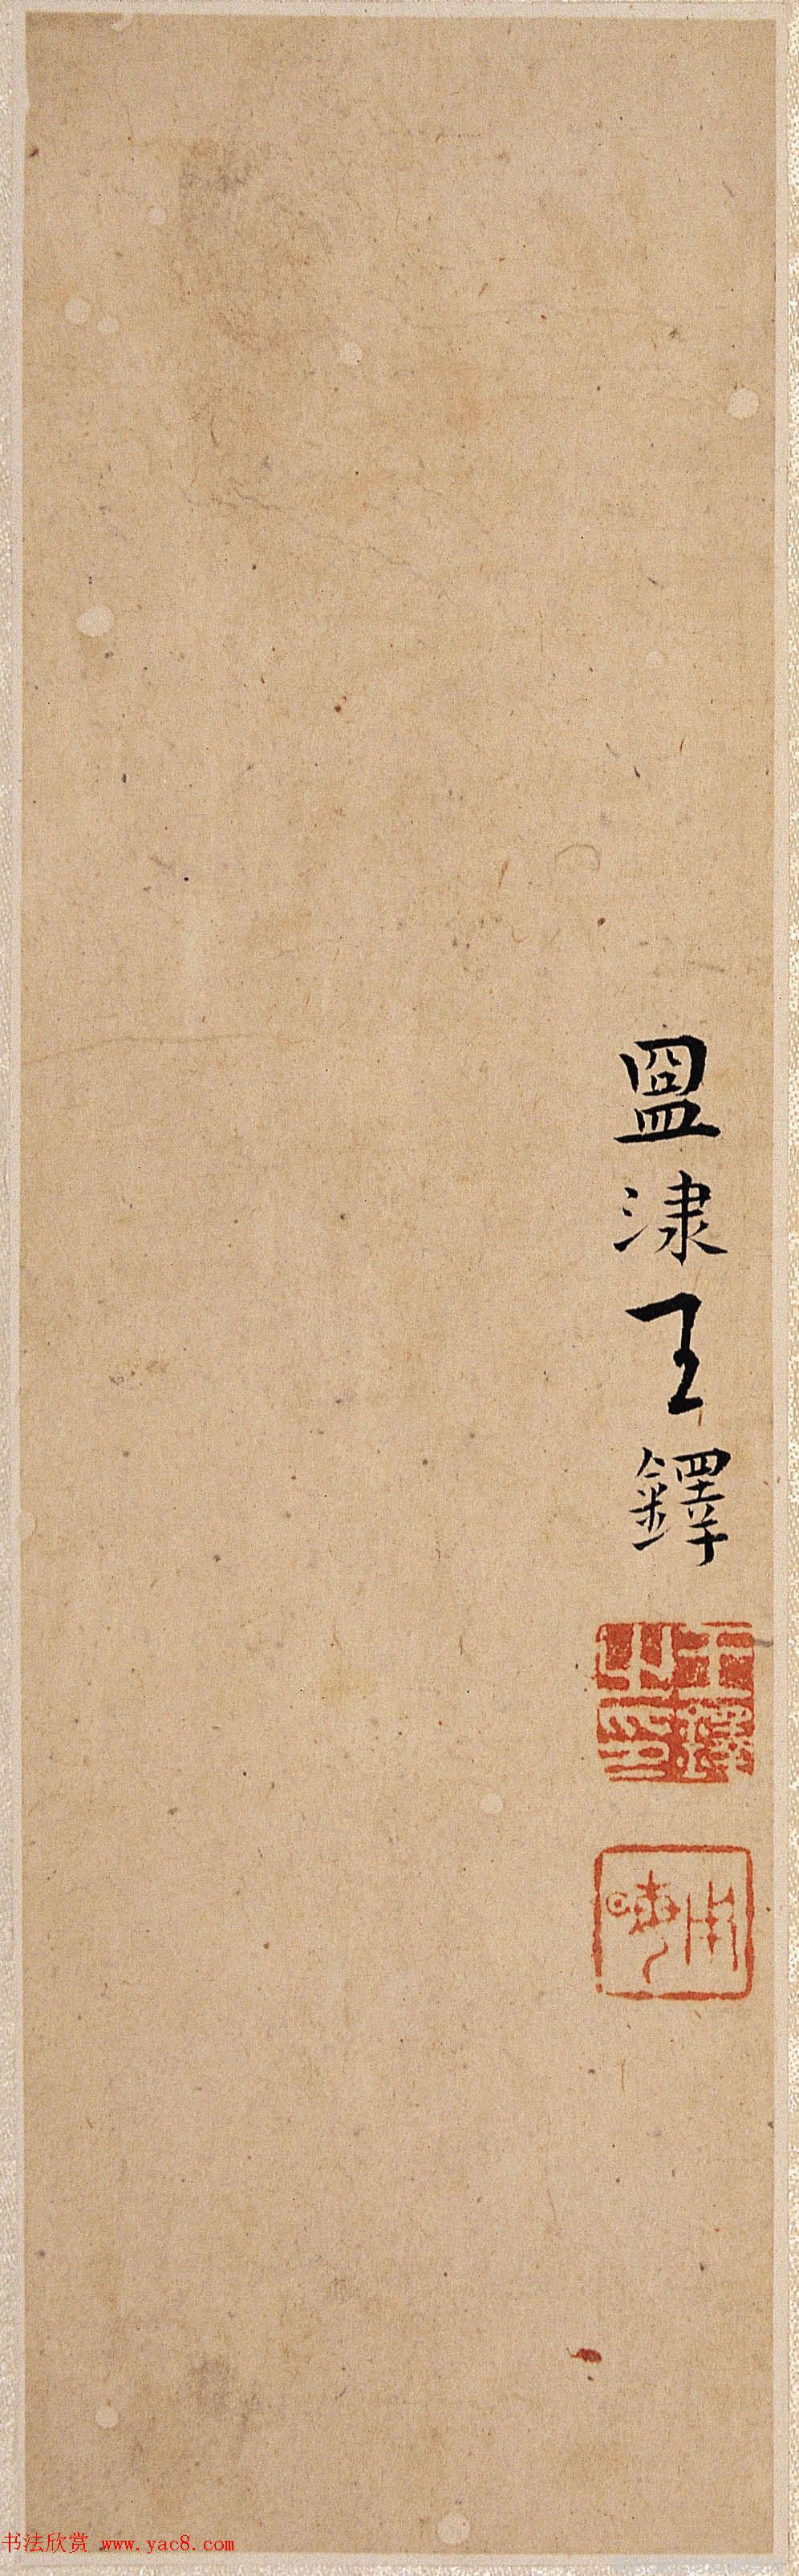 盥涑王鐸
王鐸之印
书法欣赏 www.yac8.com